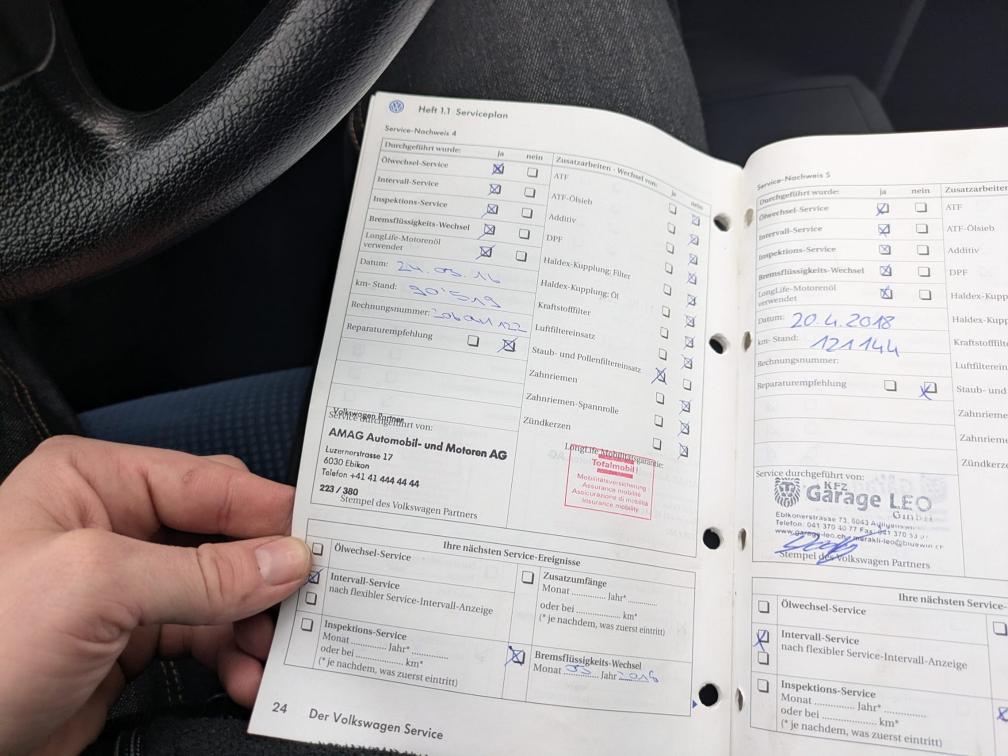 Heft 1.1 Serviceplan
Service-Nachweis 4
Durchgeführt wurde: ja nein
Ölwechsel-Service
Intervall-Service
Inspektions-Service
Bremsflüssigkeits-Wechsel
LongLife-Motorenöl
verwendet
Datum:
km-Stand: 90'519
Rechnungsnummer:
Reparaturempfehlung
Zusatzarbeiten - Wechsel von: ja nein
ATF
ATF-Ölsieb
Additiv
DPF
Haldex-Kupplung: Filter
Haldex-Kupplung: Öl
Kraftstofffilter
Luftfiltereinsatz
Staub- und Pollenfiltereinsatz
Zahnriemen
Zahnriemen-Spannrolle
Zündkerzen
Volkswagen Partner
Service durchgeführt von:
AMAG Automobil- und Motoren AG
Luzernerstrasse 17
6030 Ebikon
Telefon +41 41 444 44 44
223 / 380
Stempel des Volkswagen Partners
LongLife Mobilitätsgarantie:
Totalmobil!
Mobilitätsversicherung
Assurance mobilité
Assicurazione di mobilità
Insurance mobility
Ihre nächsten Service-Ereignisse
Ölwechsel-Service
Intervall-Service
nach flexibler Service-Intervall-Anzeige
Inspektions-Service
Monat Jahr*
oder bei km*
(* je nachdem, was zuerst eintritt)
Zusatzumfänge
Monat Jahr*
oder bei km*
(* je nachdem, was zuerst eintritt)
Bremsflüssigkeits-Wechsel
Monat Jahr
24 Der Volkswagen Service
Service-Nachweis 5
Durchgeführt wurde: ja nein
Ölwechsel-Service
Intervall-Service
Inspektions-Service
Bremsflüssigkeits-Wechsel
LongLife-Motorenöl
verwendet
Datum: 20.4.2018
km-Stand: 121144
Rechnungsnummer:
Reparaturempfehlung
Zusatzarbeiten
ATF
ATF-Ölsieb
Additiv
DPF
Haldex-Kupp
Haldex-Kupp
Kraftstofffilte
Luftfilterein
Staub- und
Zahnrieme
Zahnriem
Zündkerze
Service durchgeführt von:
KFZ
Garage LEO
GmbH
Ebikonerstrasse 73, 6043
Telefon: 041 370 40 77 Fax: 041 370
www.garage-leo.ch
Stempel des Volkswagen Partners
Ihre nächsten Service-
Ölwechsel-Service
Intervall-Service
nach flexibler Service-Intervall-Anzeige
Inspektions-Service
Monat Jahr*
oder bei km*
(* je nachdem, was zuerst eintritt)